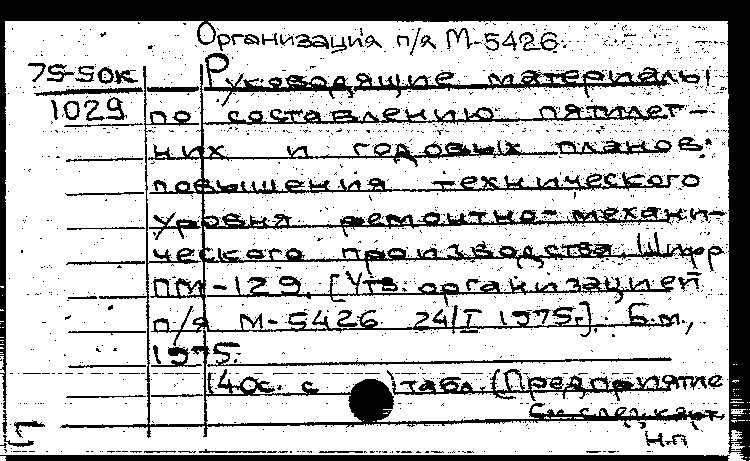 Организация п/я М-5426.
75-50к Руководящие материалы
1029 по составлению пятилет-
них и годовых планов
повышения технического
уровня ремонтно-механи-
ческого производства. Шифр
ПМ-129. [Утв. организацией
п/я М-5426 24/I 1975г.]. Б.м.,
1975.
140с. с табл. (Предприятие
См. след. карт.
Н.п